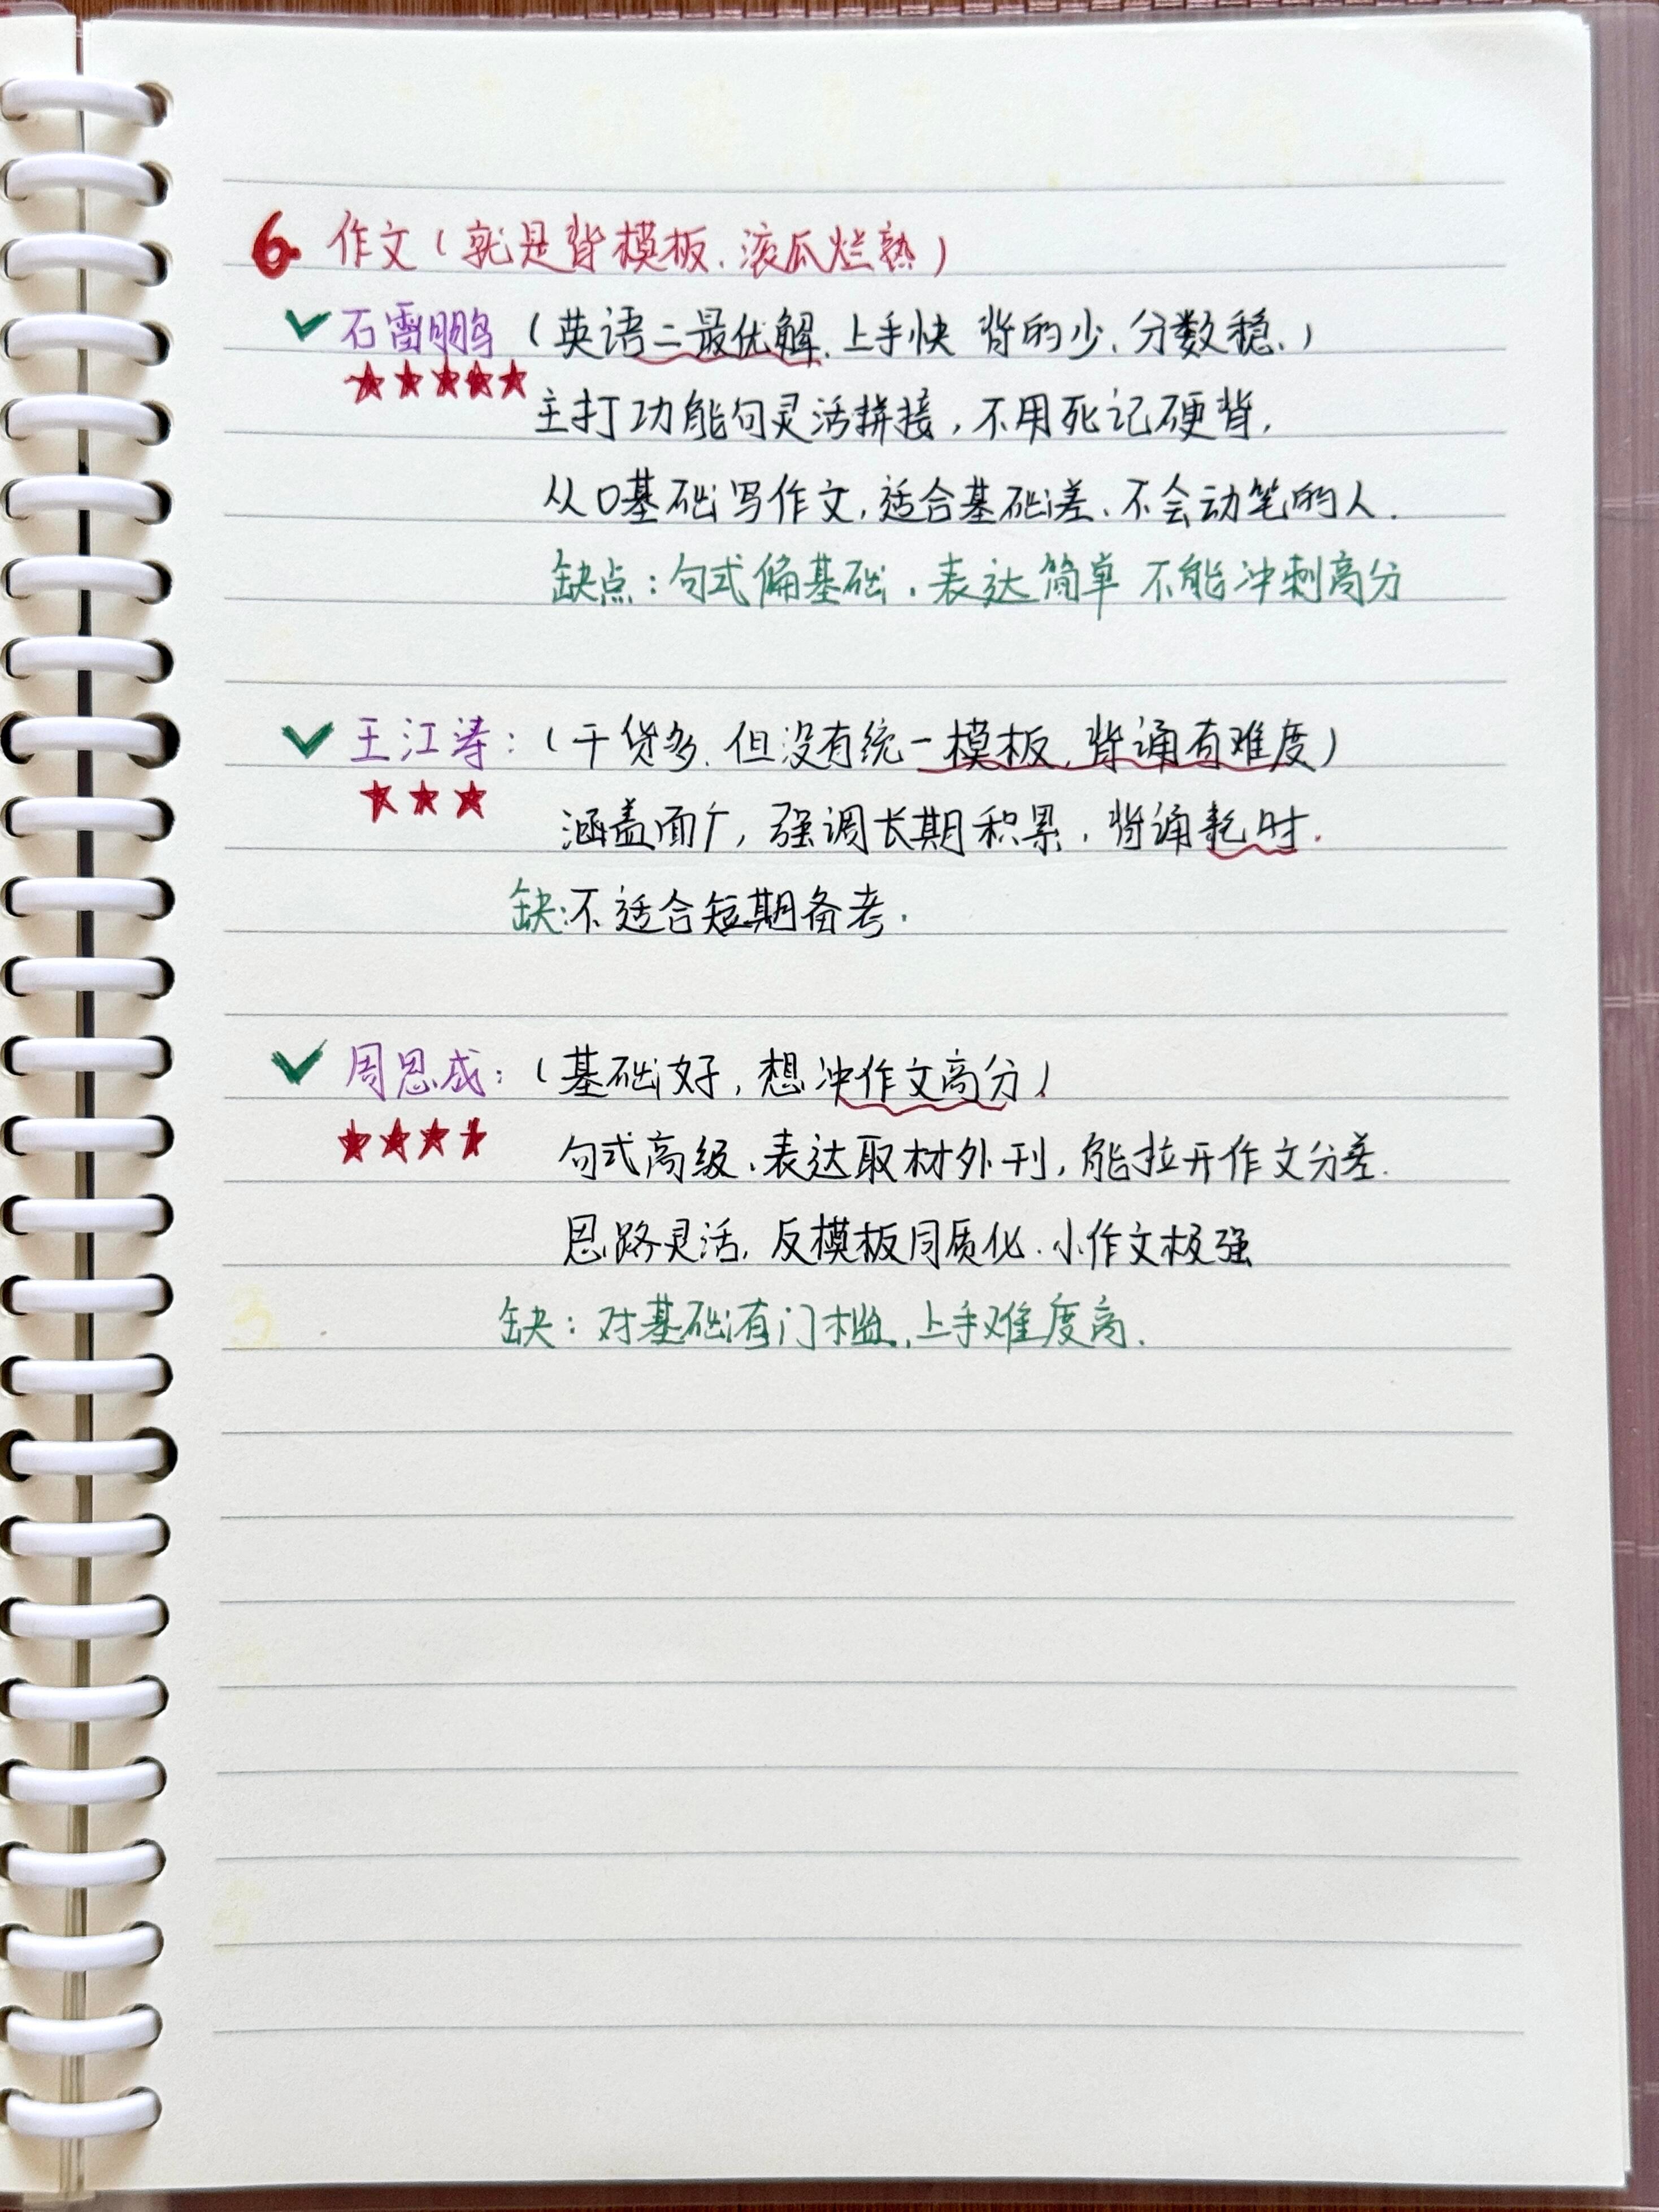 6 作文(就是背模板.滚瓜烂熟)
石雷鹏(英语二最优解.上手快 背的少.分数稳.)
★★★★★
主打功能句灵活拼接,不用死记硬背,
从0基础写作文,适合基础差、不会动笔的人.
缺点:句式偏基础.表达简单 不能冲刺高分
王江涛:(干货多.但没有统一模板,背诵有难度)
★★★
涵盖面广,强调长期积累,背诵耗时.
缺:不适合短期备考.
周思成:(基础好,想冲作文高分)
★★★
句式高级.表达取材外刊,能拉开作文分差.
思路灵活,反模板同质化.小作文极强
缺:对基础有门槛.,上手难度高.